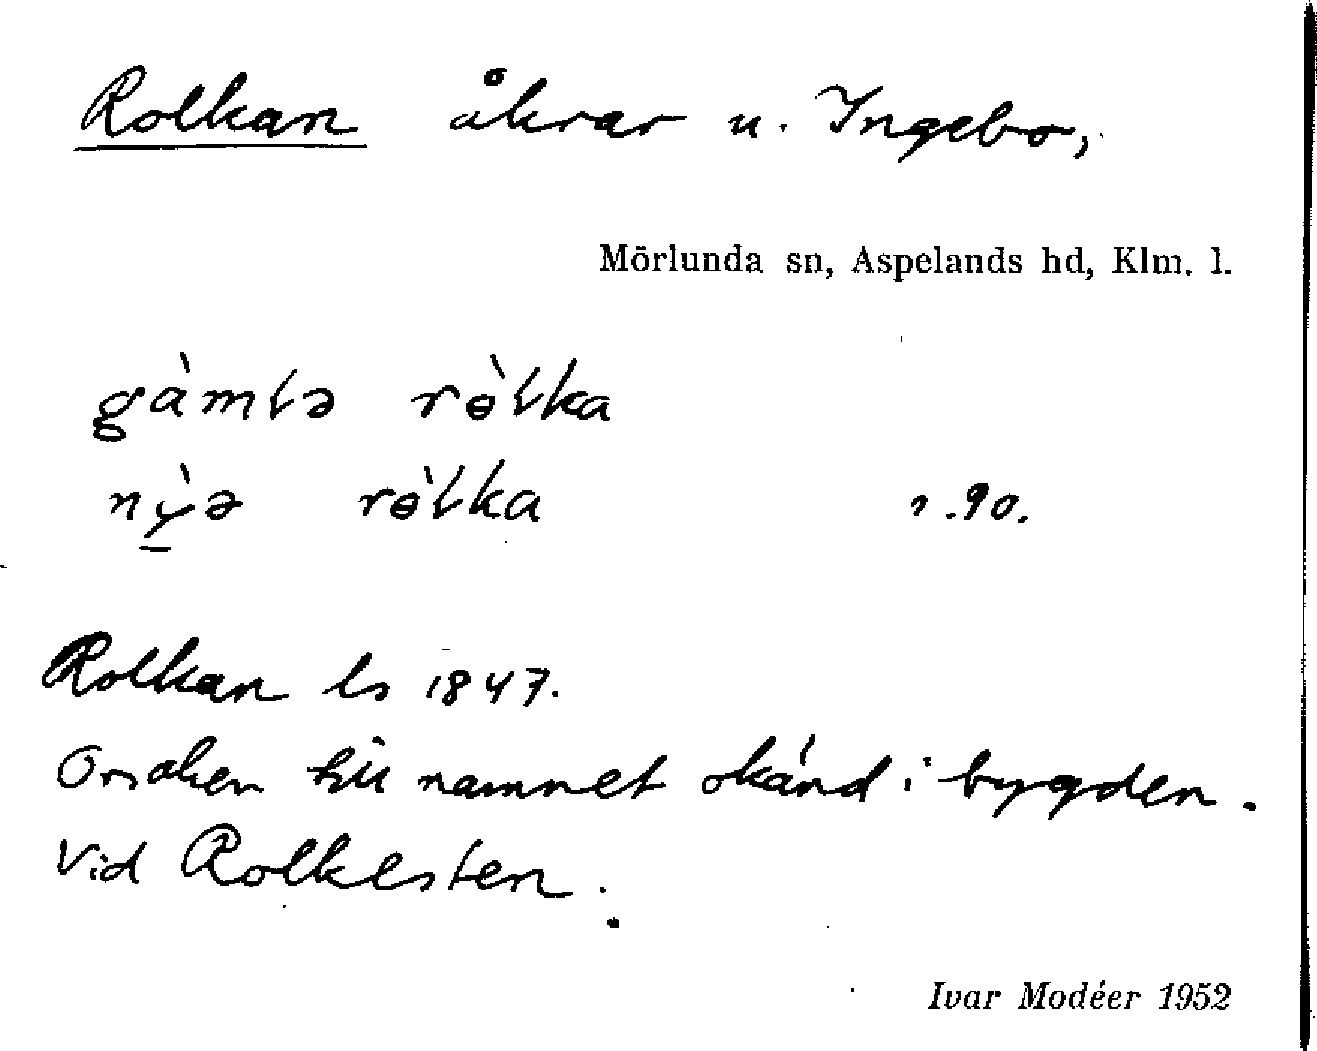 Rolkan åkrar u. Ingebo,
Mörlunda sn, Aspelands hd, Klm. l.
gàmlə rɵ̀lka
nỳ̠ə rɵ̀lka r.90.
Rolkan ls 1847.
Orsaken till namnet okänd i bygden.
Vid Rolkesten.
Ivar Modéer 1952